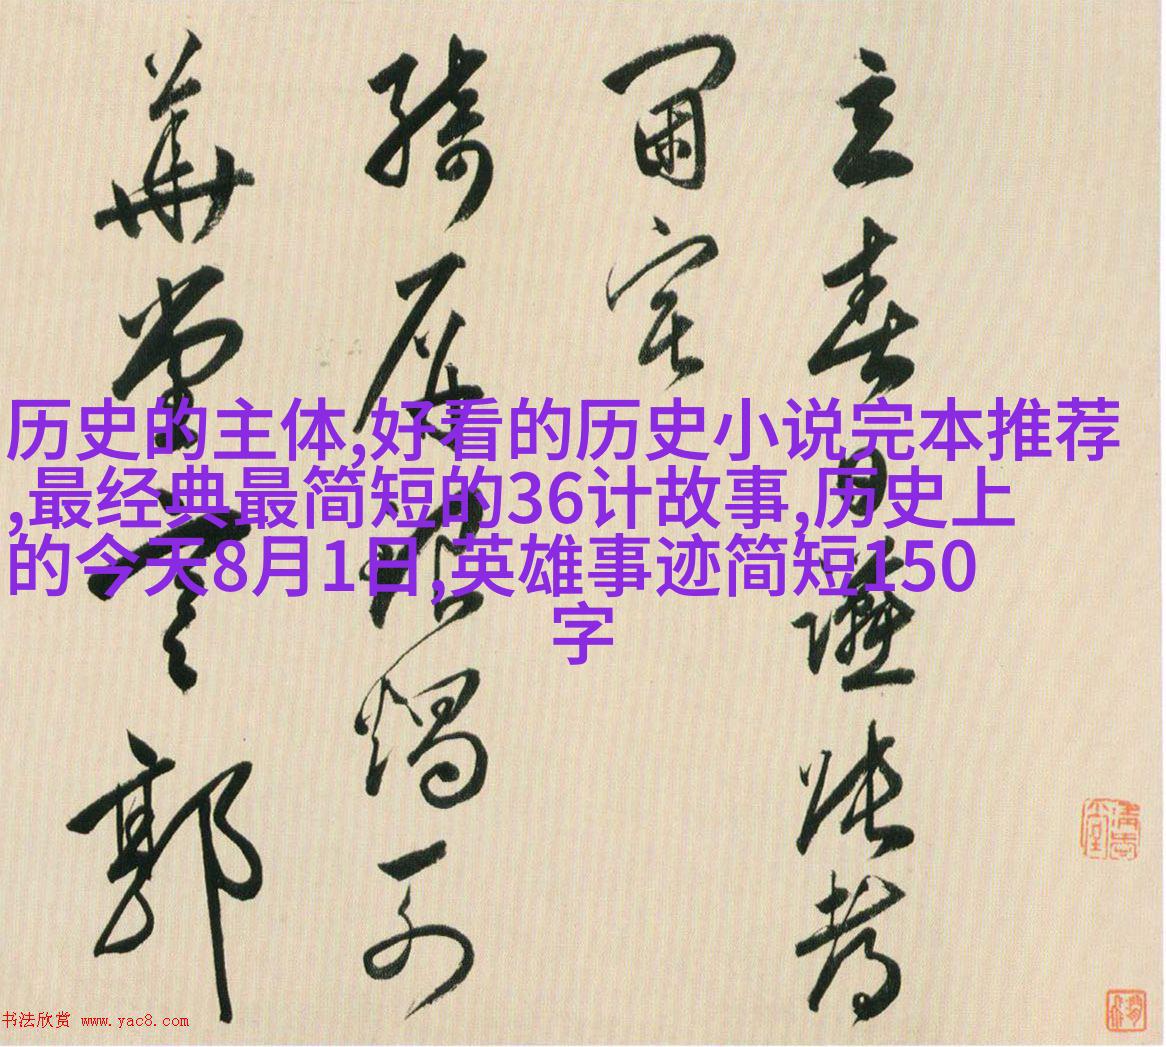 立春日讌張督
閫宅
綺銀燭
華堂郭
历史的主体,好看的历史小说完本推荐
,最经典最简短的36计故事,历史上
的今天8月1日,英雄事迹简短150
字
书法欣赏 www.yac8.com